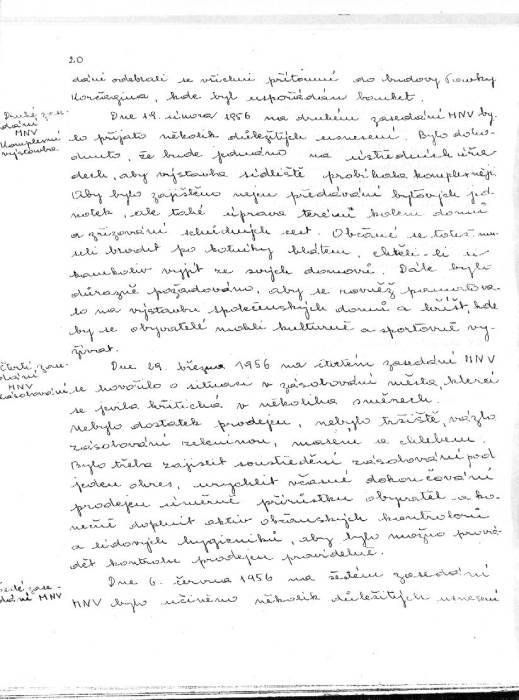 20
dání odebrali se všichni přítomní do budovy Pavky
Korčagina, kde byl uspořádán banket.
Druhé zase-
dání
MNV
Komplexní
výstavba
Dne 19. února 1956 na druhém zasedání MNV by-
lo přijato několik důležitých usnesení. Bylo doho-
dnuto, že bude jednáno na ústředních úřa-
dech, aby výstavba sídliště probíhala komplexněji.
Aby bylo zajištěno nejen předávání bytových jed-
notek, ale také úprava terénu kolem domů
a zřizování schůdných cest. Občané se totiž mu-
seli brodit po kotníky blátem, chtěli-li
kamkoliv vyjít ze svých domovů. Dále bylo
důrazně požadováno, aby se rovněž pamatova-
lo na výstavbu společenských domů a hřišť, kde
by se obyvatelé mohli kulturně a sportovně vy-
žívat.
Čtvrté zase-
dání
MNV
zásobování
Dne 29. března 1956 na čtvrtém zasedání MNV
se hovořilo o situaci v zásobování města, která
se jevila kritická v několika směrech.
Nebylo dostatek prodejen, nebylo tržiště, vázlo
zásobování zeleninou, masem a chlebem.
Bylo třeba zajistit soustředění zásobování pod
jeden okres, urychlit včasné dokončování
prodejen úměrně přírůstku obyvatel a ko-
nečně doplnit aktiv občanských kontrolorů
a lidových hygieniků, aby bylo možno prová-
dět kontrolu prodejen pravidelně.
Šesté zase-
dání MNV
Dne 6. června 1956 na šestém zasedání
MNV bylo učiněno několik důležitých usnesení